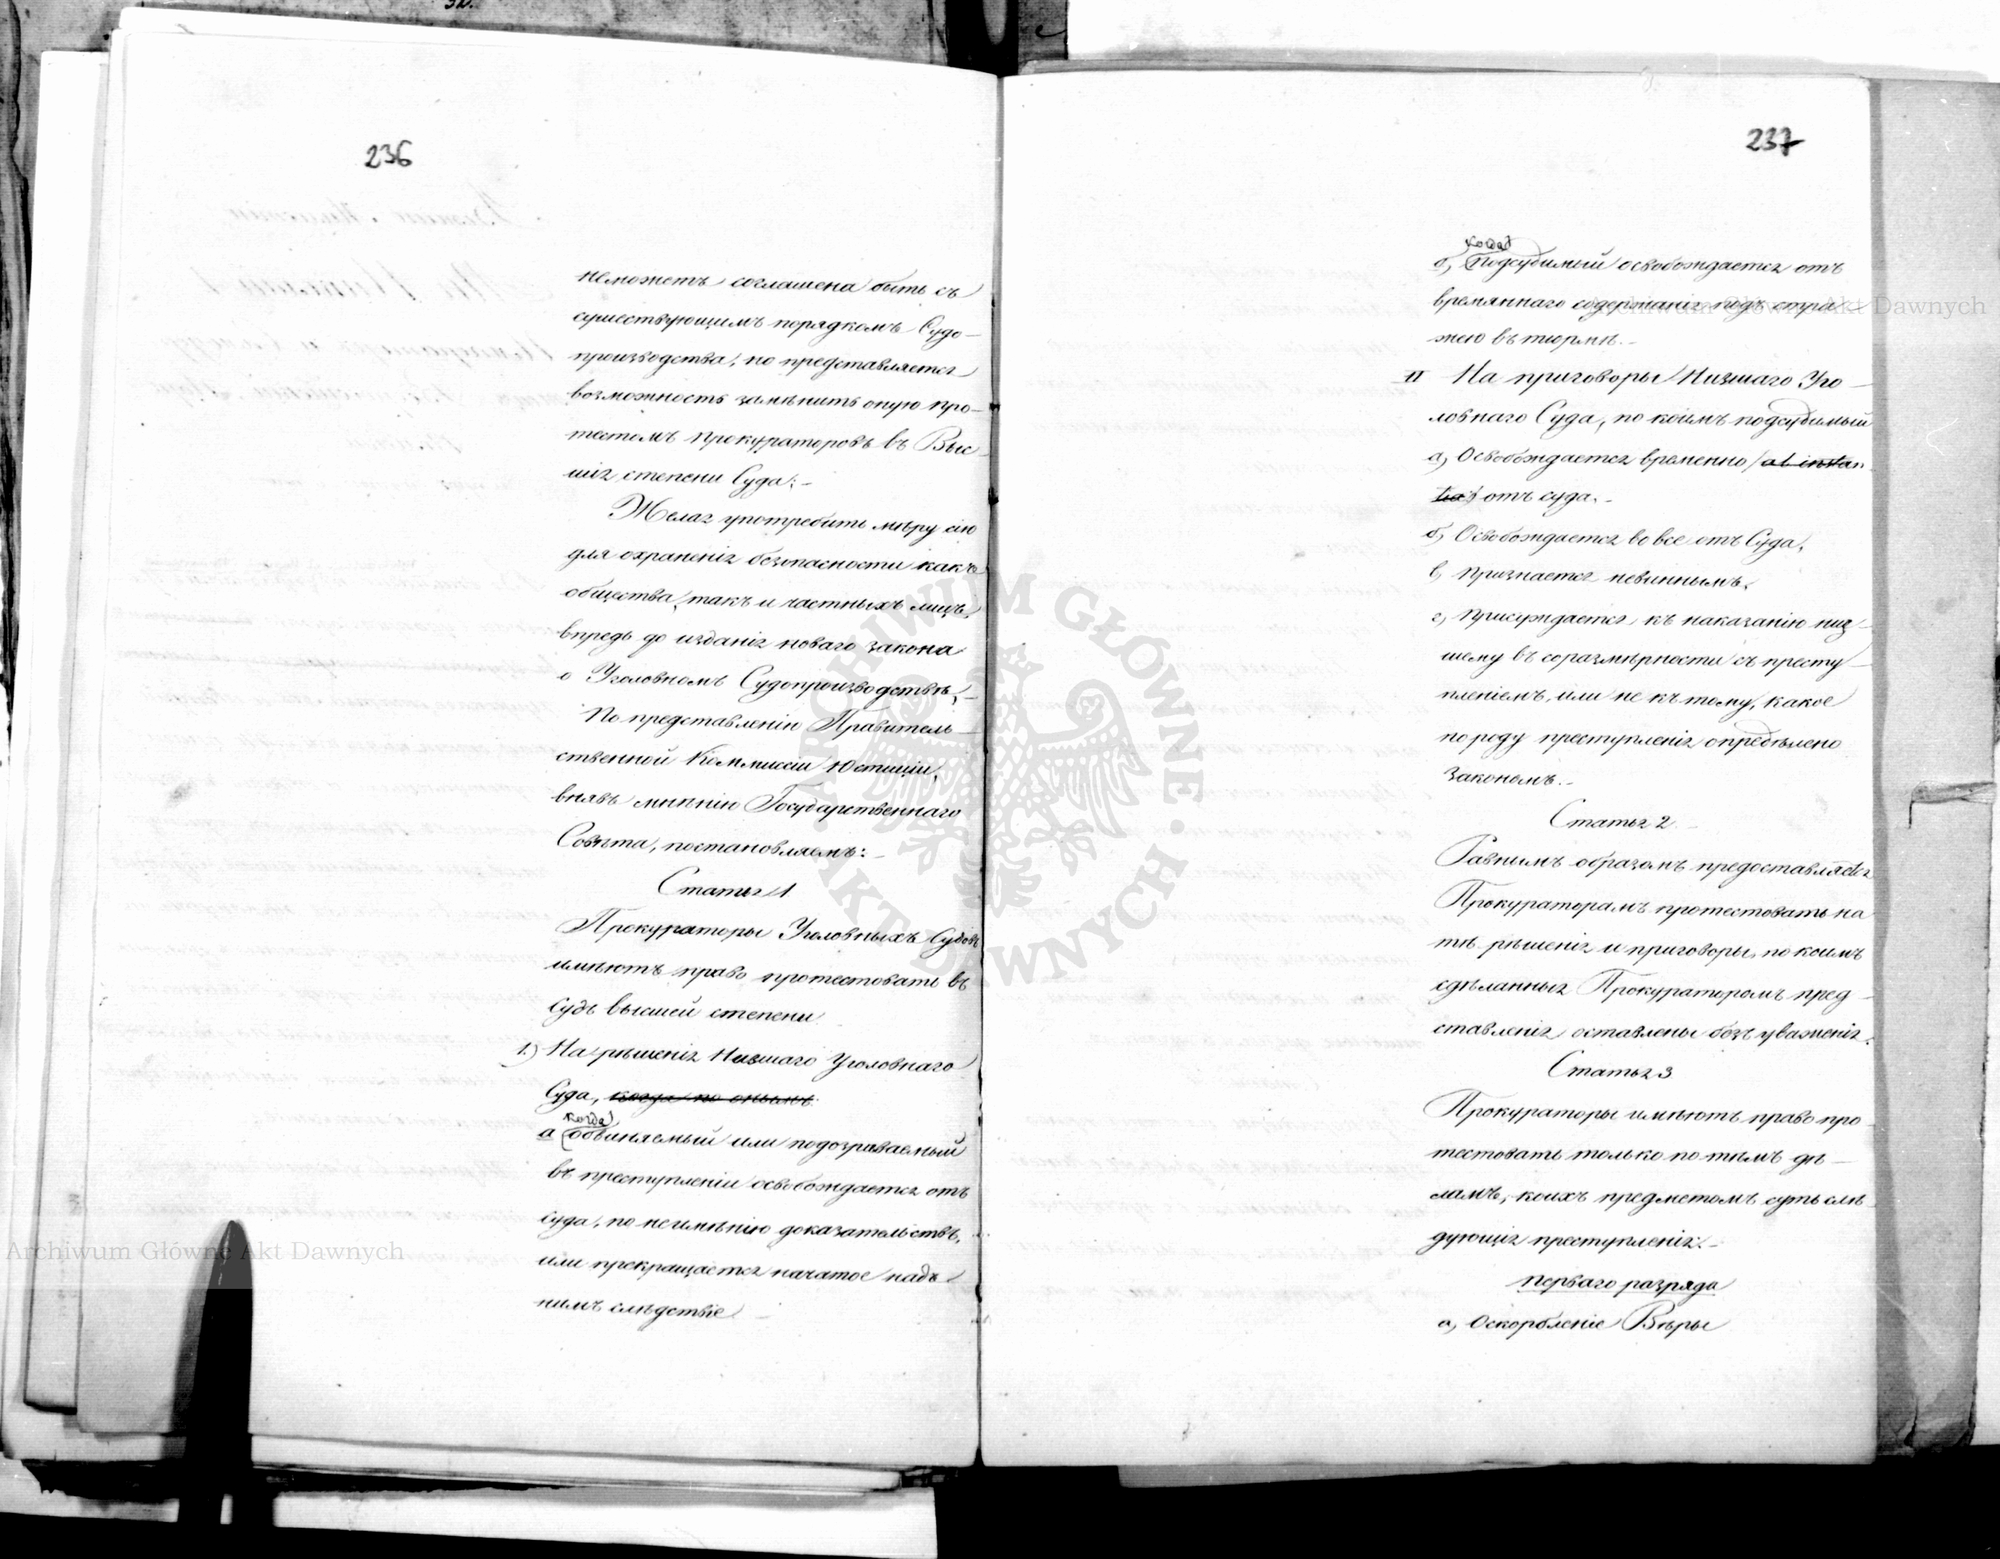 236
неможетъ соглашена быть съ
существующимъ порядкомъ Судо-
производства, но представляется
возможность замѣнить оную про-
тестомъ прокураторовъ въ Выс-
шія степени Суда:-
Желая употребить мѣру сію
для охраненія безопасности какъ
общества, такъ и частныхъ лицъ,
впредь до изданія новаго закона
о Уголовномъ Судопроизводствѣ,-
По представленію Правитель-
ственной Коммиссіи Юстиціи,
внявъ мнѣнію Государственнаго
Совѣта, постановляемъ:-
Статья 1
Прокураторы Уголовныхъ Судовъ
имѣютъ право протестовать въ
Судъ высшей степени
1.) На рѣшенія Низшаго Уголовнаго
Суда, когда по онымъ
когда
а обвиняемый или подозрѣваемый
въ преступленіи освобождается отъ
суда, по неимѣнію доказательствъ,
или прекращается начатое надъ
нимъ слѣдствіе
237
когда
б, подсудимый освобождается отъ
времяннаго содержанія подъ стра-
жею въ тюрмѣ.-
II На приговоры Низшаго Уго-
ловнаго Суда, по коимъ подсудимый
а, Освобождается временно /ab instan
tia/ отъ суда.-
б, Освобождается во все отъ Суда,
в, признается невиннымъ.
с, присуждается къ наказанію низ-
шему въ соразмѣрности съ престу-
пленіемъ, или не къ тому, какое
породу преступленія опредѣлено
закономъ.-
Статья 2
Равнымъ образомъ предоставляется
Прокураторамъ протестовать на
тѣ рѣшенія и приговоры, по коимъ
сдѣланныя Прокураторомъ пред-
ставленія оставлены безъ уваженія.
Статья 3
Прокураторы имѣютъ право про-
тестовать только по тѣмъ дѣ-
ламъ, коихъ предметомъ суть слѣ-
дующія преступленія:-
перваго разряда
а, Оскорбленіе Вѣры
Archiwum Główne Akt Dawnych
Archiwum Główne Akt Dawnych
ARCHIWUM GŁÓWNE · AKT DAWNYCH ·